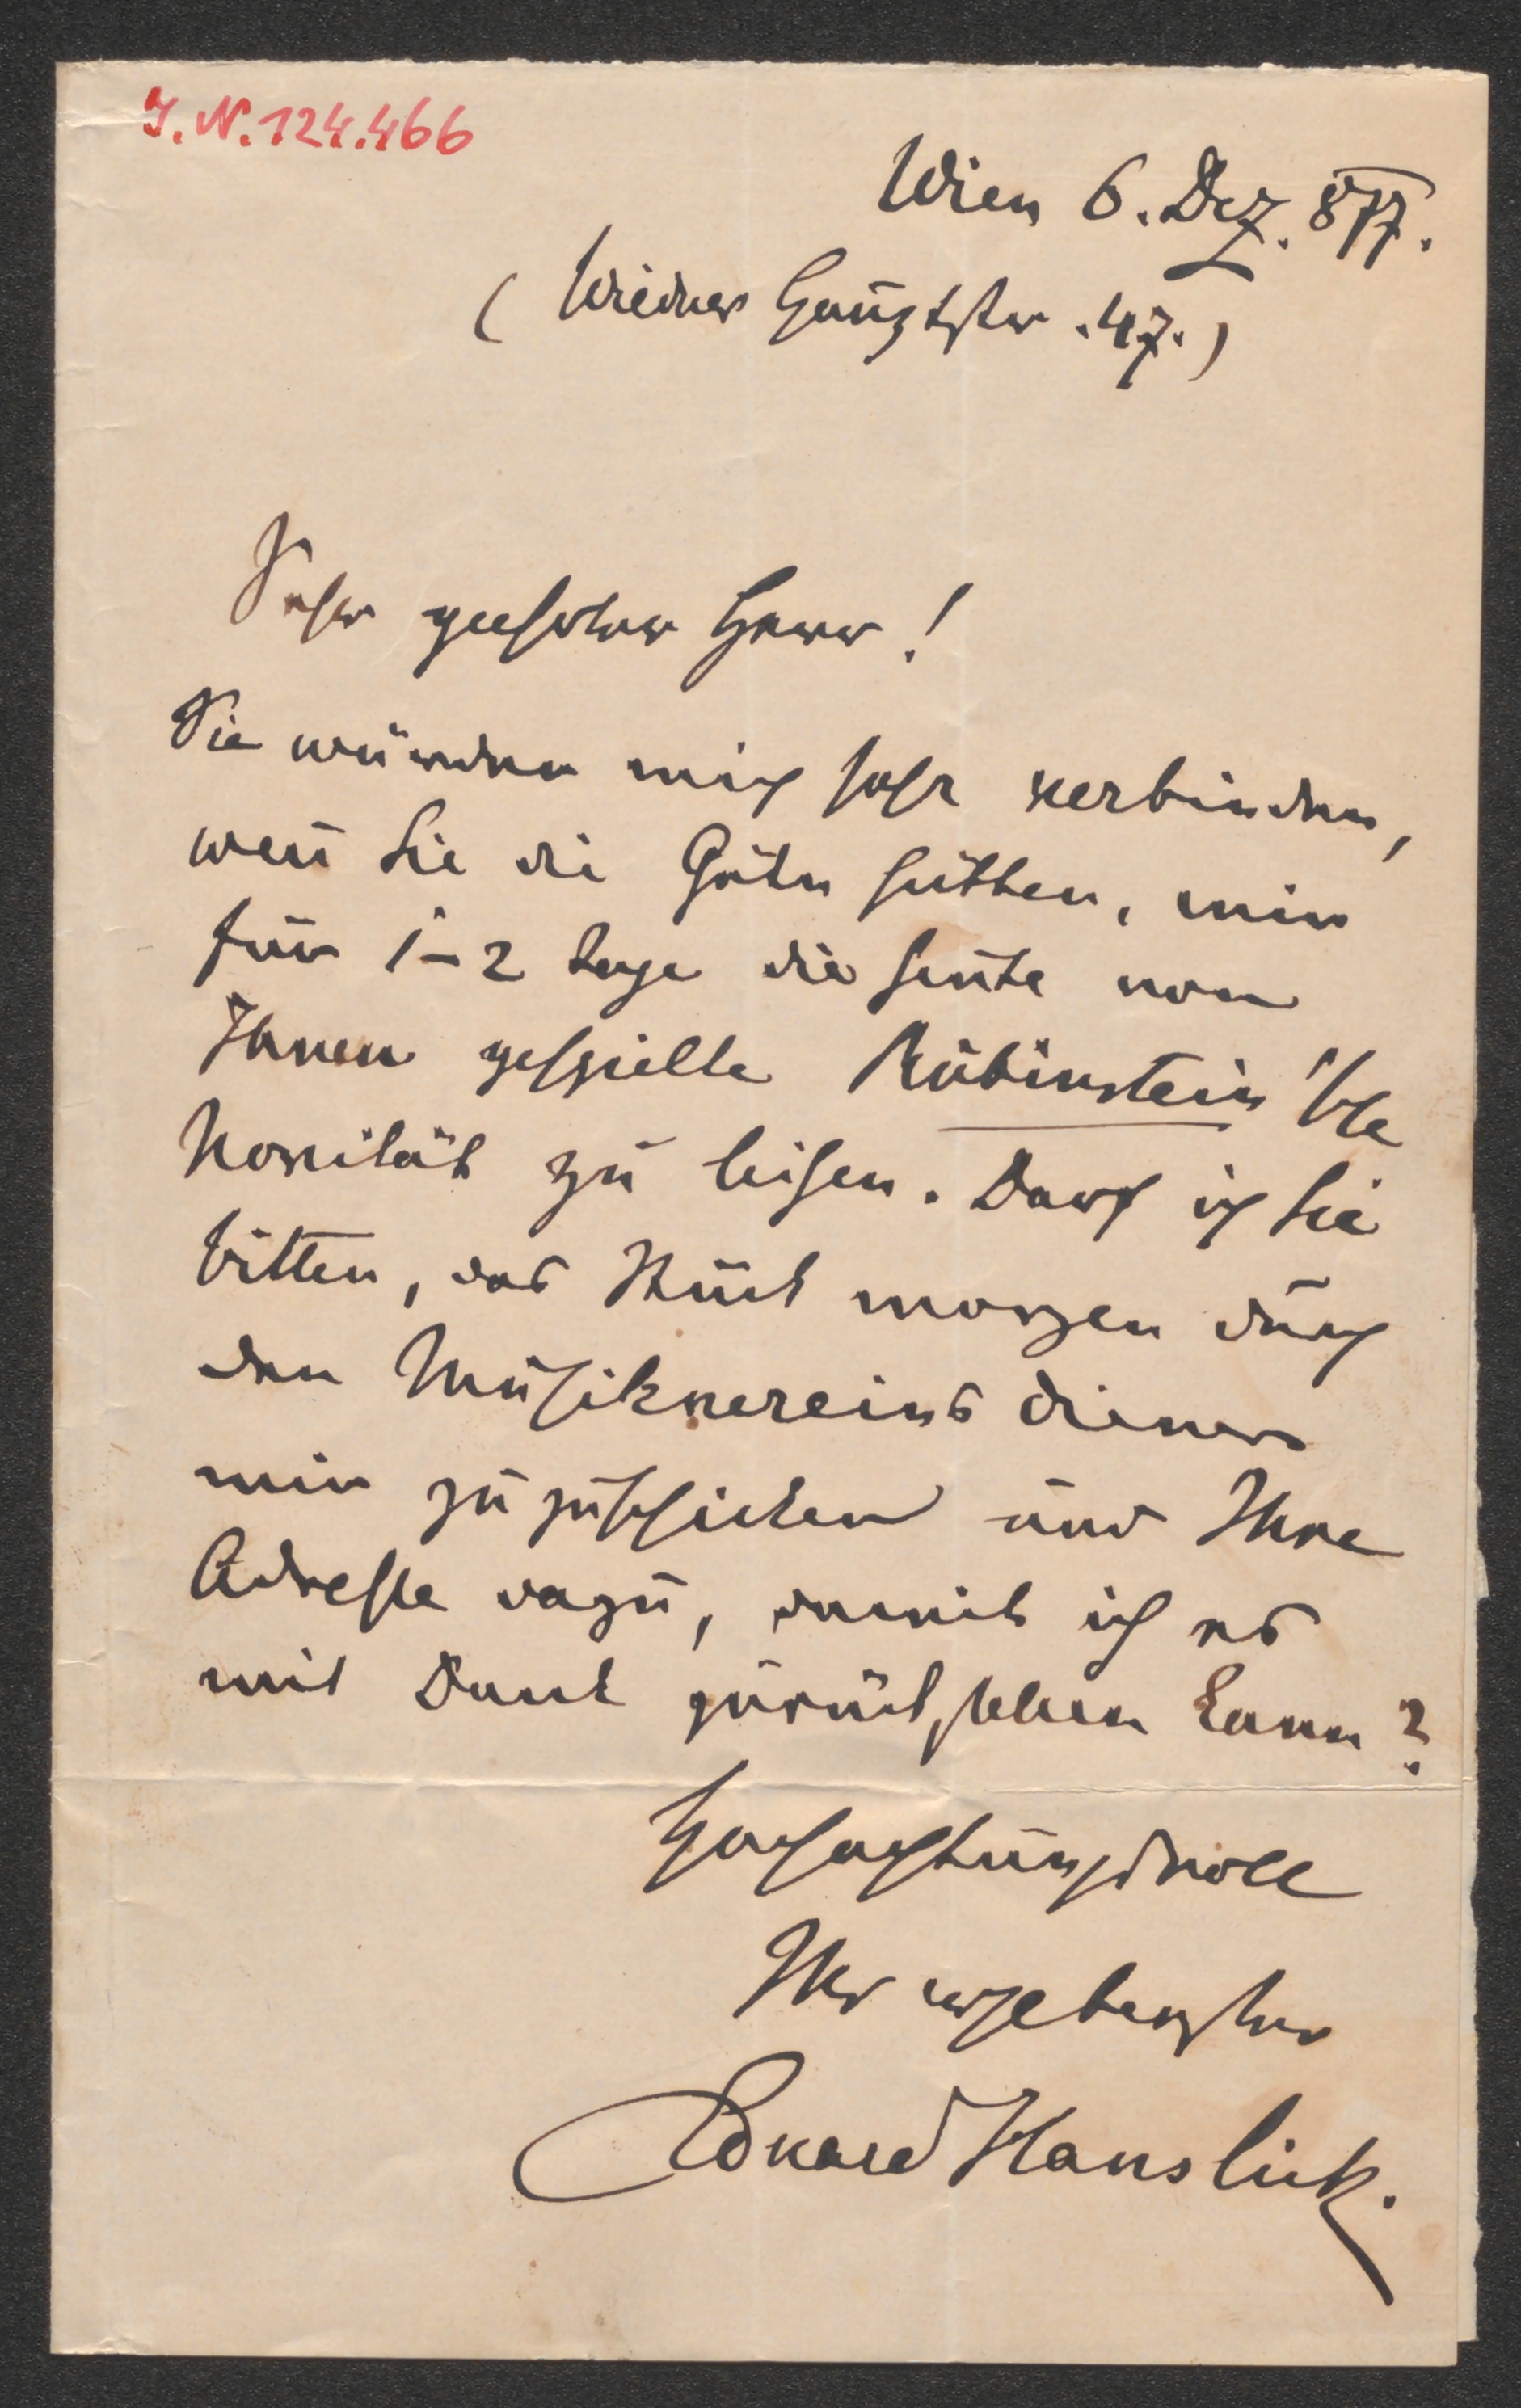 I. N. 124.466
Wien 6. Dez. 877.
(Wiedner Hauptstr. 47.)
Sehr geehrter Herr!
Sie würden mich sehr verbinden,
wen̄ Sie die Güte hätten, mir
für 1-2 Tage die heute von
Ihnen gespielte Rubinstein'sche
Novität zu leihen. Darf ich Sie
bitten, das Stück morgen durch
den Musikvereins diener
mir zuzuschicken und Ihre
Adresse dazu, damit ich es
mit Dank zurückstellen kann?
Hochachtungsvoll
Ihr ergebenster
Eduard Hanslick.